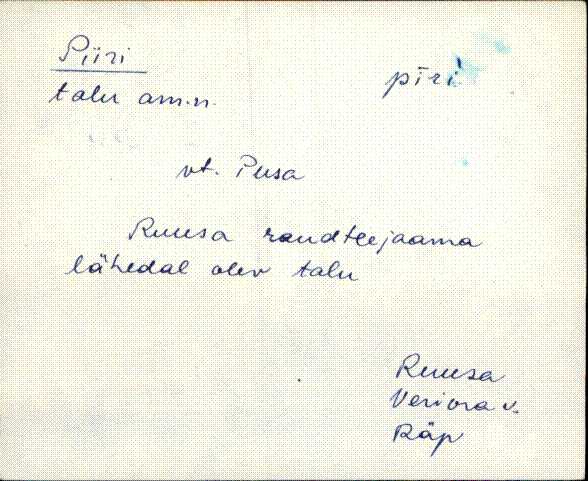 Piiri
pīri
talu am.n.
vt. Pusa
Ruusa raudteejaama
lähedal olev talu
Ruusa
Veriora v.
Räp